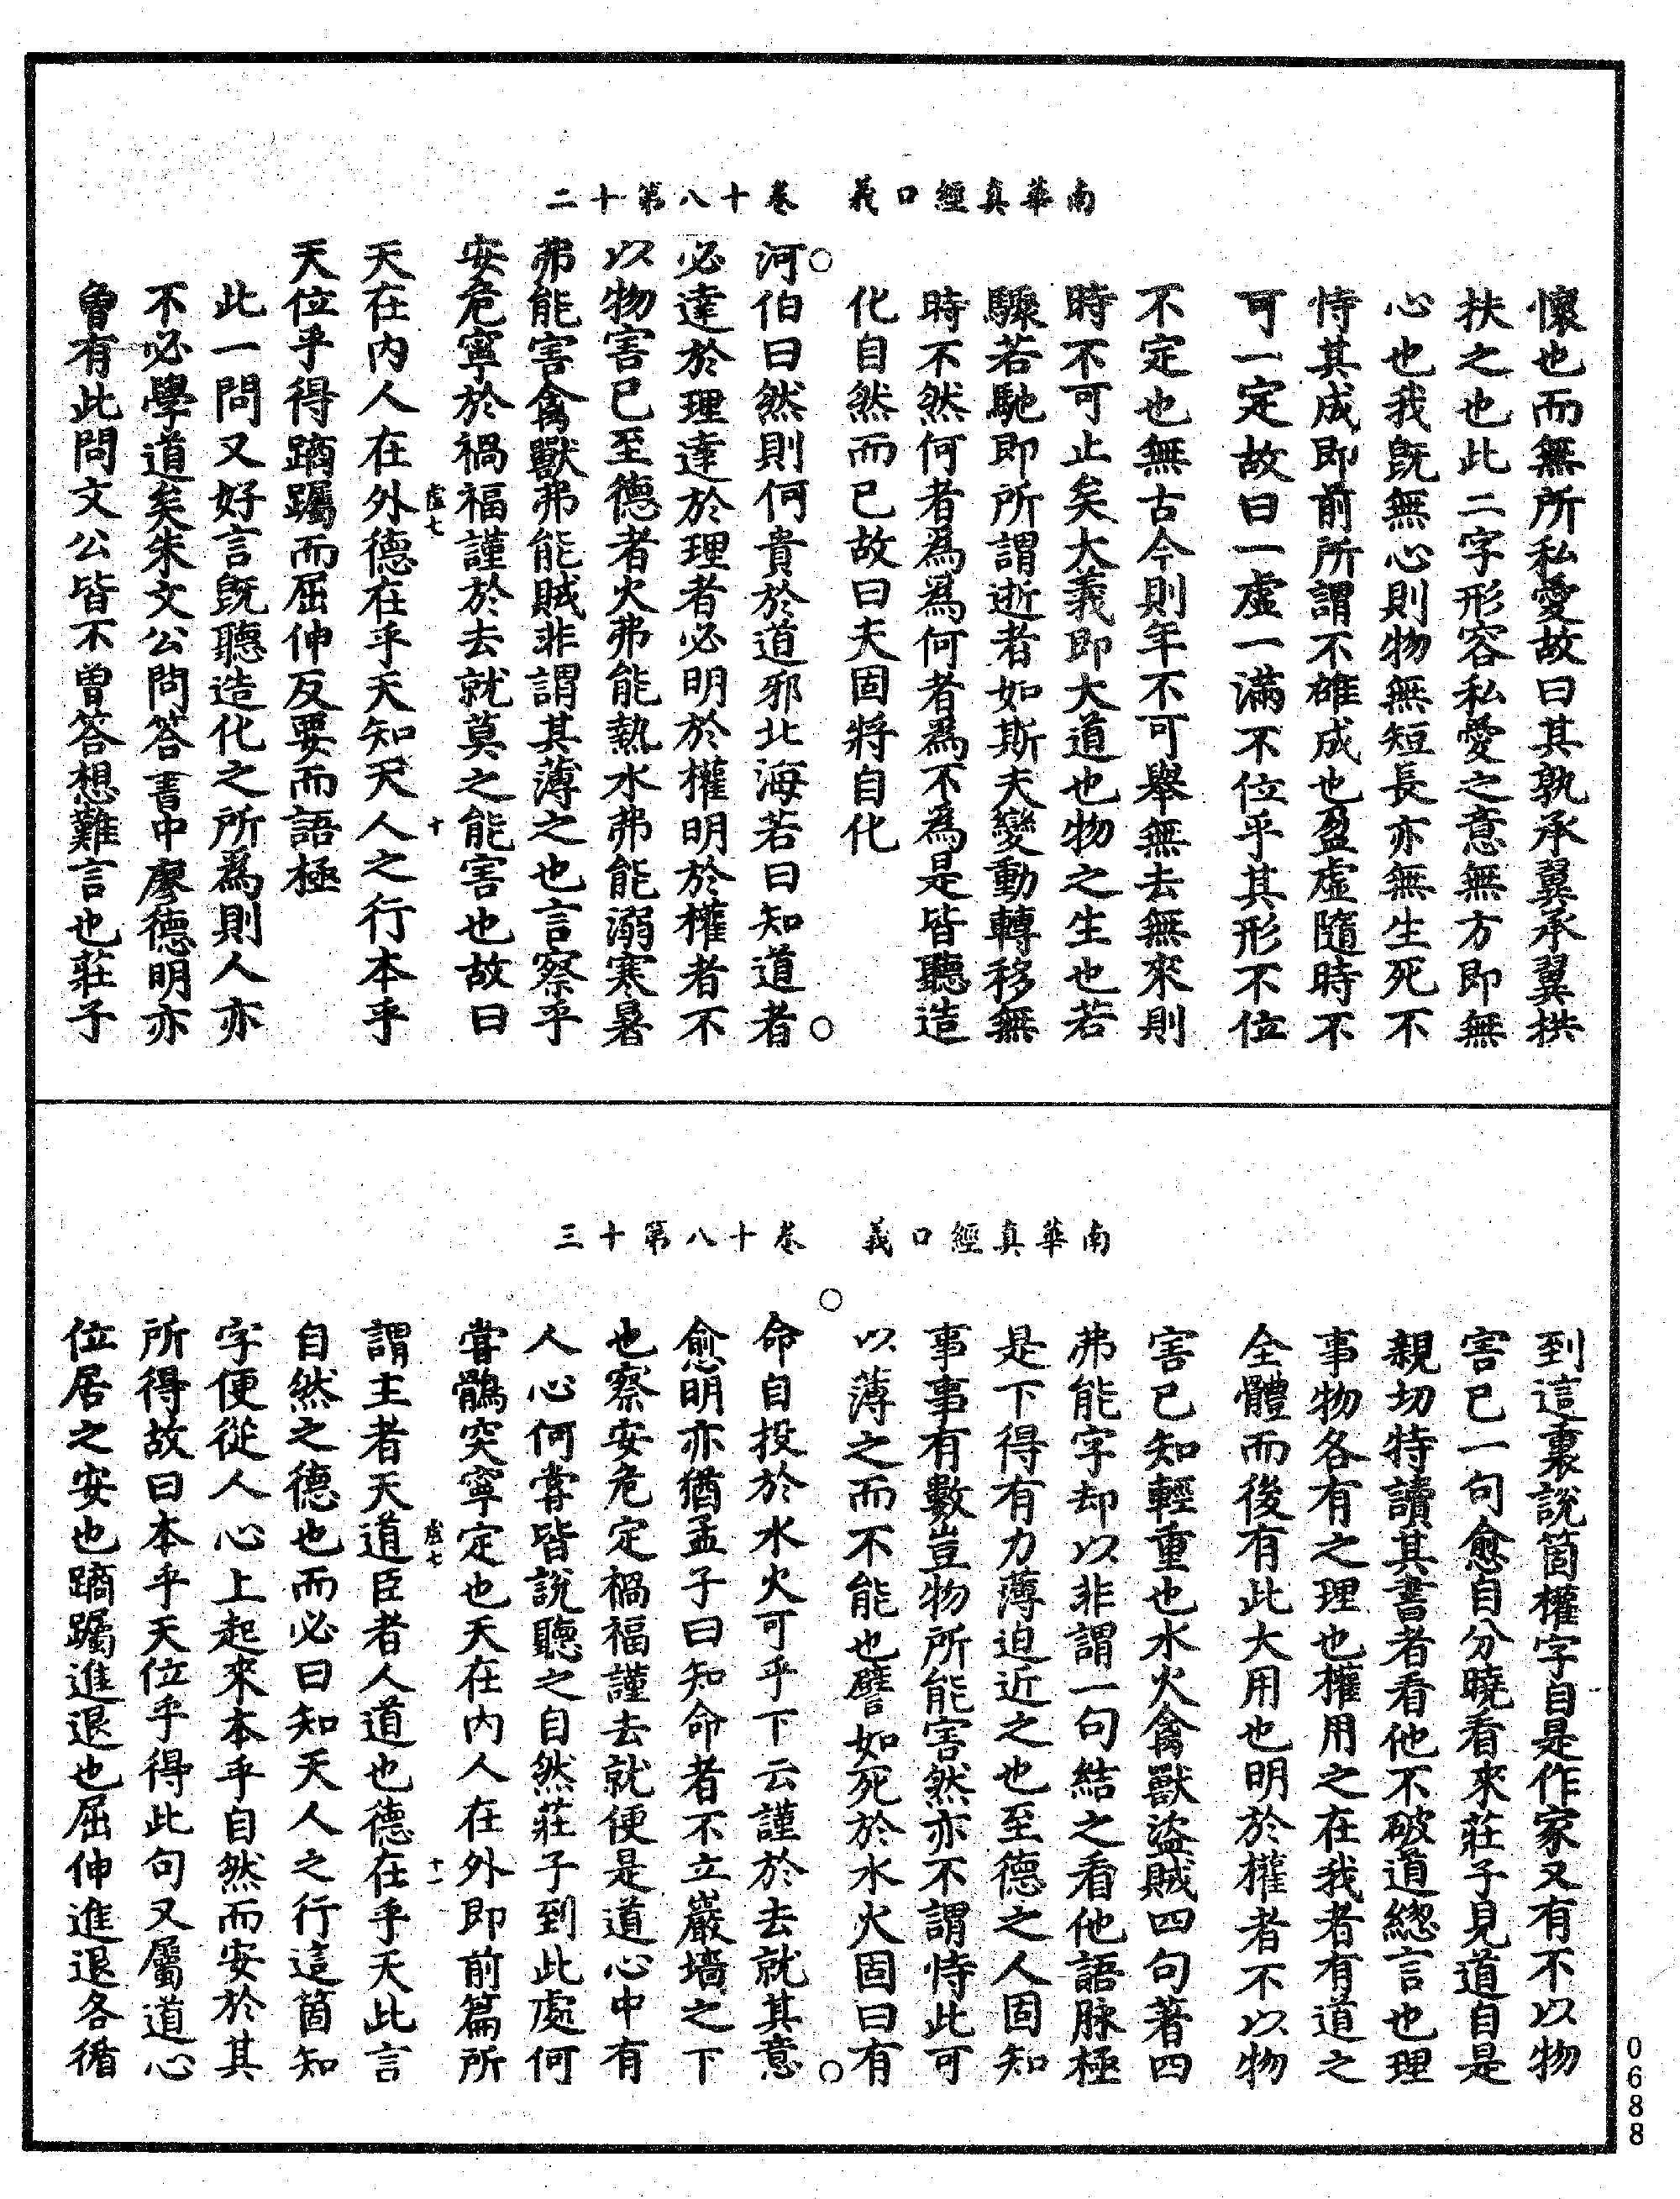 南華真經口義 卷十八第十二
懷也而無所私愛故曰其孰承翼承翼拱
扶之也此二字形容私愛之意無方即無
心也我既無心則物無短長亦無生死不
恃其成即前所謂不雄成也盈虛隨時不
可一定故曰一虛一滿不位乎其形不位
不定也無古今則年不可舉無去無來則
時不可止矣大義即大道也物之生也若
驟若馳即所謂逝者如斯夫變動轉移無
時不然何者為為何者為不為是皆聽造
化自然而已故曰夫固將自化
○
○
河伯曰然則何貴於道邪北海若曰知道者
必達於理達於理者必明於權明於權者不
以物害已至德者火弗能熱水弗能溺寒暑
弗能害禽獸弗能賊非謂其薄之也言察乎
安危寧於禍福謹於去就莫之能害也故曰
虛七 十
天在內人在外德在乎天知天人之行本乎
天位乎得蹢䠱而屈伸反要而語極
此一問又好言既聽造化之所為則人亦
不必學道矣朱文公問答書中廖德明亦
曾有此問文公皆不曾答想難言也莊子
南華真經口義 卷十八第十三
到這裏說箇權字自是作家又有不以物
害已一句愈自分曉看來莊子見道自是
親切特讀其書者看他不破道總言也理
事物各有之理也權用之在我者有道之
全體而後有此大用也明於權者不以物
害已知輕重也水火禽獸盜賊四句著四
弗能字却以非謂一句結之看他語脉極
是下得有力薄迫近之也至德之人固知
事事有數豈物所能害然亦不謂恃此可
以薄之而不能也譬如死於水火固曰有
○
○
命自投於水火可乎下云謹於去就其意
愈明亦猶孟子曰知命者不立巖墻之下
也察安危定禍福謹去就便是道心中有
人心何嘗皆說聽之自然莊子到此處何
嘗鶻突寧定也天在內人在外即前篇所
虛七 十一
謂主者天道臣者人道也德在乎天此言
自然之德也而必曰知天人之行這箇知
字便從人心上起來本乎自然而安於其
所得故曰本乎天位乎得此句又屬道心
位居之安也蹢䠱進退也屈伸進退各循
0688